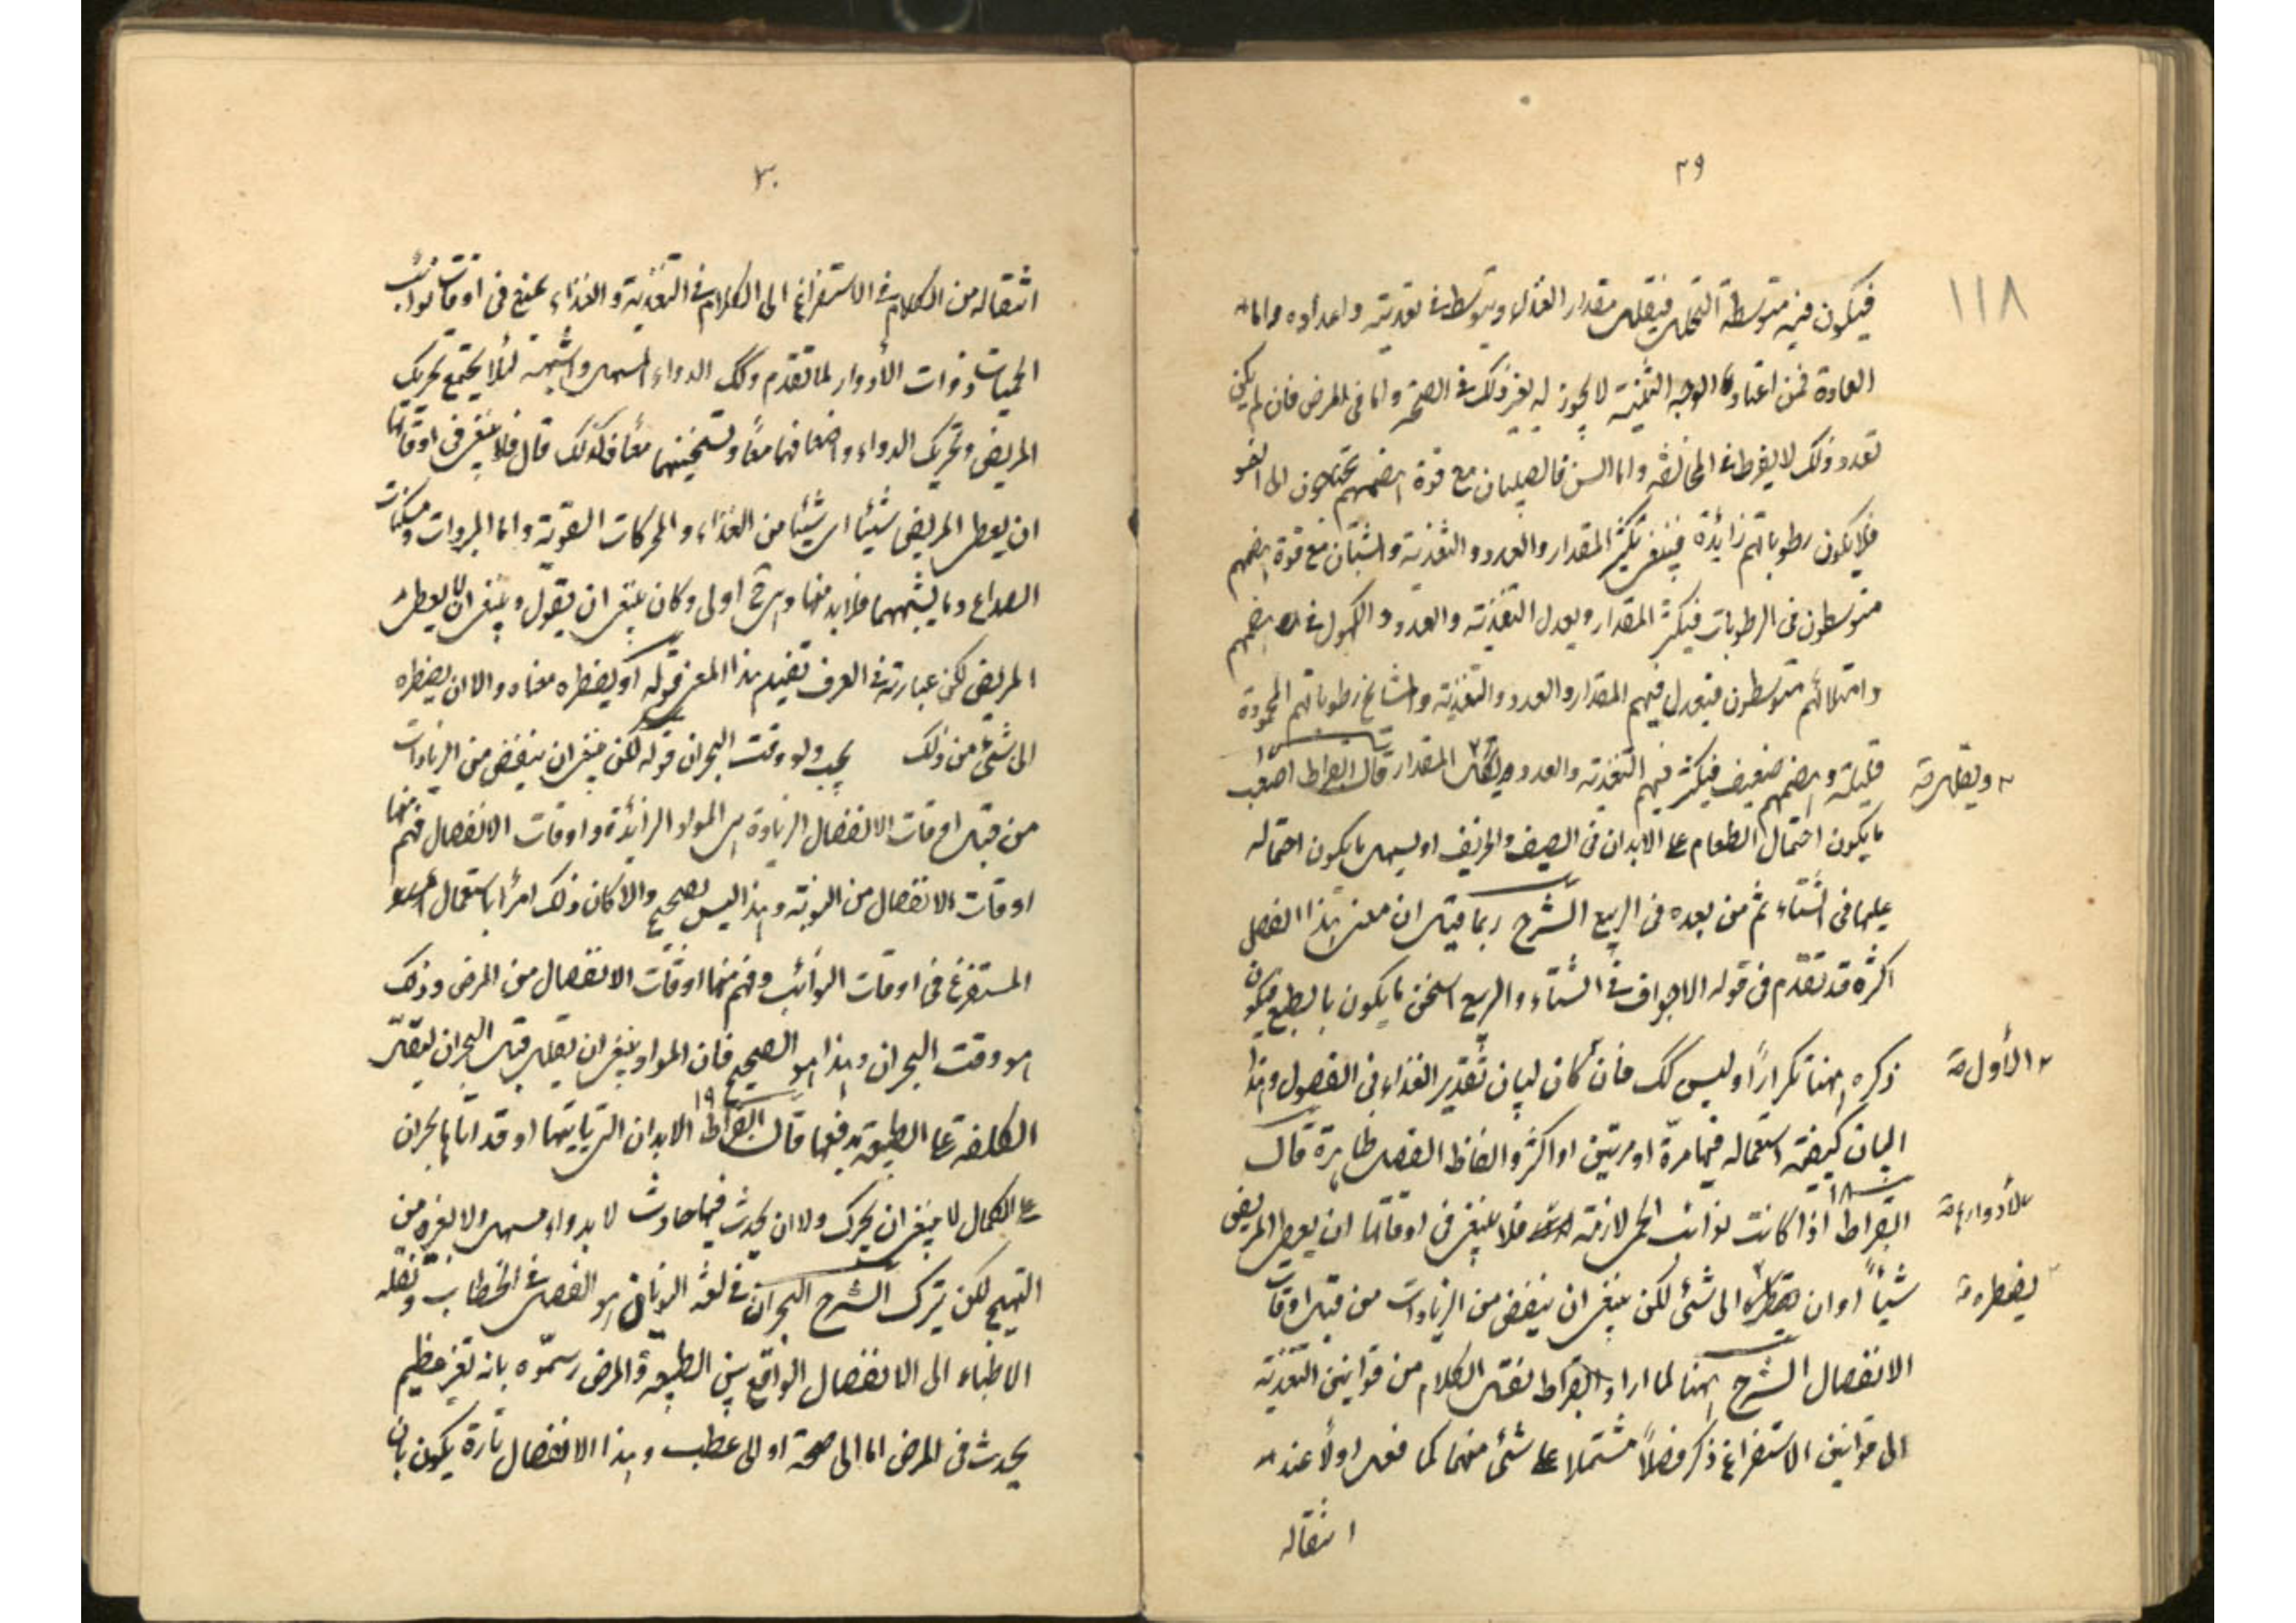 ٢٩
١١٨
فيكون فيه متوسطة التحلل فيقلل مقدار الغذاء ويتوسط فى تغذيته واعداده واما
العادة فمن اعتاد الوجبة لا يجوز له يغير ذلك فى الصحة واما فى المرض فان لم يكن
تعدد ذلك لا يفرط فى المخالفة واما السن فالصبيان مع قوة هضمهم يحتاجون الى النمو
فلا يكون رطوباتهم زائدة فينبغى تكثير المقدار والعدد والتغذية والشبان مع قوة هضمهم
متوسطون فى الرطوبات فيكثر المقدار ويعدل التغذية والعدد والكهول فى هضمهم
وامتلائهم متوسطون فيعدل فيهم المقدار والعدد والتغذية والمشايخ رطوباتهم المحمودة
قليلة وهضمهم ضعيف فيكثر فيهم التغذية والعدد ويقلل المقدار قال ابقراط اصعب
ويقلل صح
ما يكون احتمال الطعام على الابدان فى الصيف والخريف اوسهل ما يكون احتماله
عليها فى الشتاء ثم من بعده فى الربيع الشرح ربما قيل ان معنى هذا الفصل
اكثره قد تقدم فى قوله الاجواف فى الشتاء والربيع اسخن ما يكون بالطبع فيكون
ذكره ههنا تكراراً وليس كك فان كان لبيان تقدير الغذاء فى الفصول وهذا
الأول صح
لبيان كيفية استعماله فيها مرة او مرتين او اكثر والفاظ الفصل ظاهرة قال
١٨
ابقراط اذا كانت نوائب الحمى لازمة فلا ينبغى فى اوقاتها ان يعطى المريض
لأدوارها صح
شيأً او ان الى شئ لكن ينبغى ان ينقص من الزيادات من قبل اوقات
يضطره صح
الانفصال الشرح ههنا لما اراد ابقراط نقل الكلام من قوانين التغذية
الى قوانين الاستفراغ ذكر فصلاً مشتملا على شئ منهما كما فعل اولاً عند
انتقاله
٣٠
انتقاله من الكلام فى الاستفراغ الى الكلام فى التغذية والغذاء يمنع فى اوقات نوائب
الحميات ذوات الأدوار لما تقدم وكك الدواء المسهل واشبهه لئلا يجتمع تحريك
المريض وتحريك الدواء واضعافهما معاً وتسخينهما معاً فكذلك قال فلا ينبغى فى اوقاتها
ان يعطى المريض شيئاً اى شيئاً من الغذاء والمحركات القوية واما المبردات ومسكنات
الصداع وما يشبههما فلا بد منها وهى ح اولى وكان ينبغى ان يقول وينبغى ان لا يعطى
المريض لكن عبارته فى العرف تفيد هذا المعنى قوله او يضطره معناه والا ان يضطره
الى شئ من ذلك يجب ولو وقت البحران قوله لكن ينبغى ان ينقص من الزيادات
من قبل اوقات الانفصال الزيادة هى المواد الزائدة واوقات الانفصال فهم منها
اوقات الانفصال من النوبة وهذا ليس بصحيح والا كان ذلك امراً باستعمال
المستفرغ فى اوقات النوائب وفهم منها اوقات الانفصال من المرض وذلك
هو وقت البحران وهذا هو الصحيح فان المواد ينبغى ان تقلل قبل البحران ليقل
١٩
الكلفة على الطبيعة بدفعها قال ابقراط الابدان التى يأتيها او قد اتاها بحران
على الكمال لا ينبغى ان يحرك ولا ان يحدث فيها حادث لا بدواء مسهل ولا بغيره من
التهييج لكن يترك الشرح البحران فى لغة اليونان هو الفصل فى الخطاب ونقله
الاطباء الى الانفصال الواقع بين الطبيعة والمرض رسموه بانه تغير عظيم
يحدث فى المرض اما الى صحة او الى عطب وهذا الانفصال تارة يكون بان